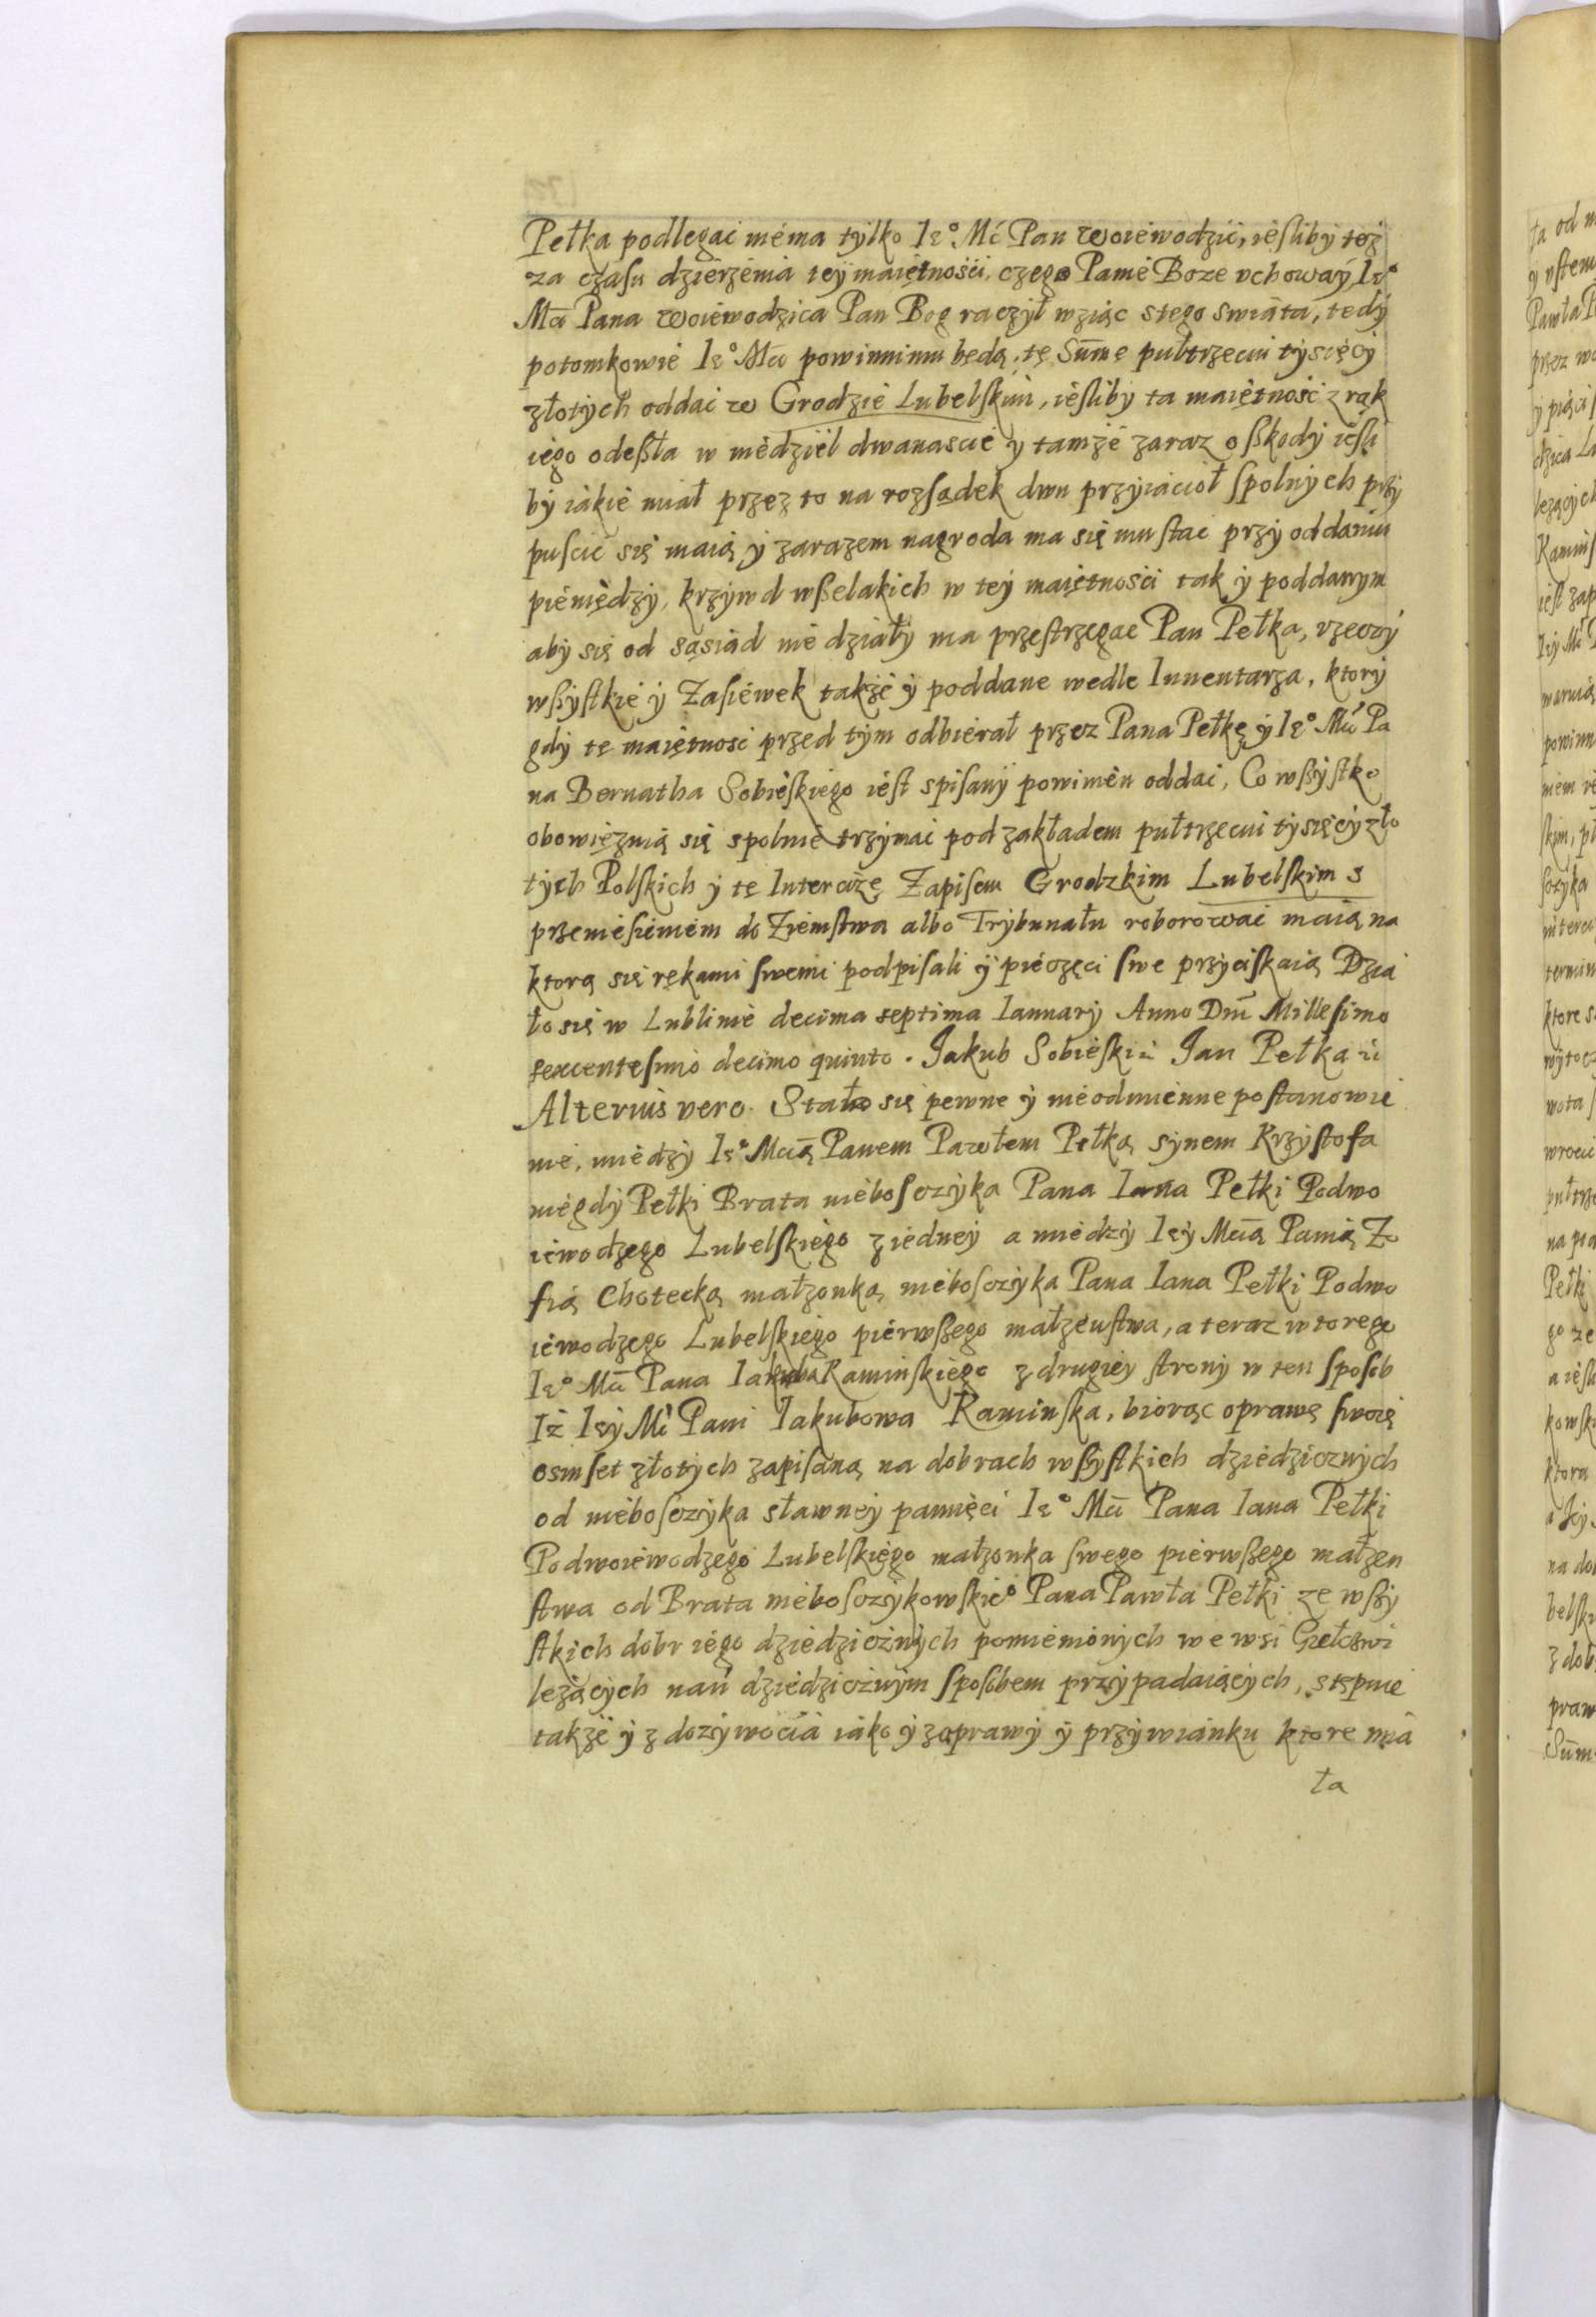 Pełka podlegać niéma tylko Ie° Mć Pan Woiéwodzić, iésliby też
za czasu dzierżenia iey maiętności, czego Panié Boze vchoway Ie°
Mći Pana Woiéwodzica Pan Bog raczył wziąc stego swiata, tedy
potomkowié Ie° Mći powinnimu będą, tę Sum̄ę pułtrzecni tysięcy
złotych oddać w Grodzié Lubelskim, iésliby ta maiętność z rąk
iégo odeszła w niédziél dwanascié y tamżé zaraz o szkody iésli
by iákié miał przez to na rozsądek dwu przyiácioł spolnych przy
puscić się maią y zarazem nagroda ma się mu stać przy oddaniu
piéniędzy, krzywd wszelakich w tey maiętności tak y poddanym
aby się od sąsiad nié działy ma przestrzegac Pan Pełka, rzeczy
wszystkié y Zasiéwek takżé y poddane wedle Inuentarza, ktory
gdy tę maiętnosć przed tym odbiérał przez Pana Pełkę y Ie° Mći Pa
na Bernatha Sobiéskiego iést spisany powinién oddać, Co wszystko
obowięznią się spolnié trzymać pod zakładem pułtrzecni tysięcy zło
tych Polskich y tę Intercizę Zapisem Grodzkim Lubelskim s
przeniésiéniém do Ziémstwa albo Trybunału roborować maią na
ktorą się rękami swemi podpisali y piéczęci swe przyciskaią Dzia
ło się w Lublinié decima septima Ianuary Anno Dn̄i Millesimo
sexcentesimo decimo quinto. Jakub Sobiéski Jan Pełka
Alterius vero. Stało się pewne y niéodmiénne postanowié
nié, miédzy Ie° Mcią Panem Pawłem Pełką synem Krzysztofa
niégdy Pełki Brata niéboszczyka Pana Iana Pełki Podwo
iéwodzego Lubelskiégo z iédney a miédzy Iey Mcią Panią Zo
fią Chotecką małżonką niéboszczyka Pana Iana Pełki Podwo
iéwodzego Lubelskiégo piérwszego małżenstwa, a teraz wtorego
Ie° Mći Pana Iakuba Kamińskiégo z drugiéy strony w ten sposob
Iż Iey Mć Pani Iakubowa Kaminska, biorąc oprawę swoię
osmset złotych zapisaną na dobrach wszystkich dziédzicznych
od niéboszczyka sławney pamięci Ie° Mći Pana Iana Pełki
Podwoiéwodzego Lubelskiégo małżonka swego piérwszego małżen
stwa od Brata niéboszczykowskié° Pana Pawła Pełki ze wszy
stkich dobr iégo dziédzicznych pomiénionych we wsi Giełczwi
leżących nań dziédzicznym sposobem przypadaiących, stępuie
takżé y z dożywocia iáko y z oprawy y przywiánku ktore mia
ła